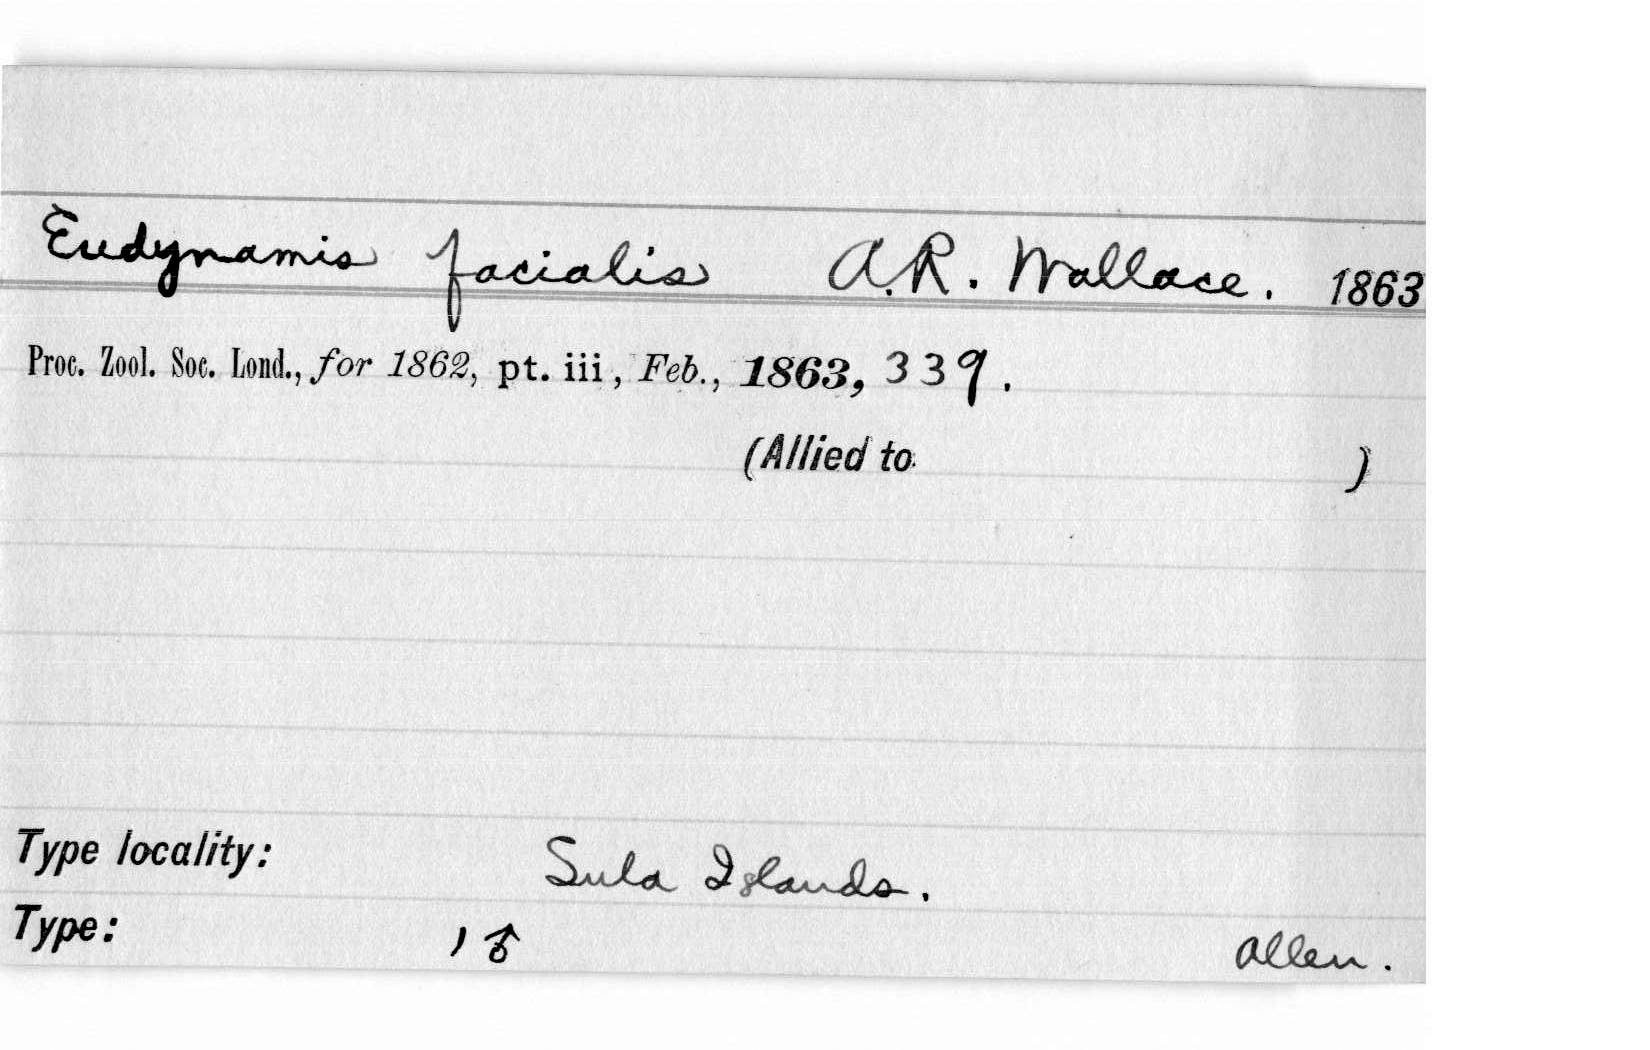 Eudynamis facialis A.R. Wallace. 1863
Proc. Zool. Soc. Lond., for 1862, pt. iii, Feb., 1863, 339.
(Allied to )
Type locality: Sula Islands.
Type: 1 ♂ Allen.